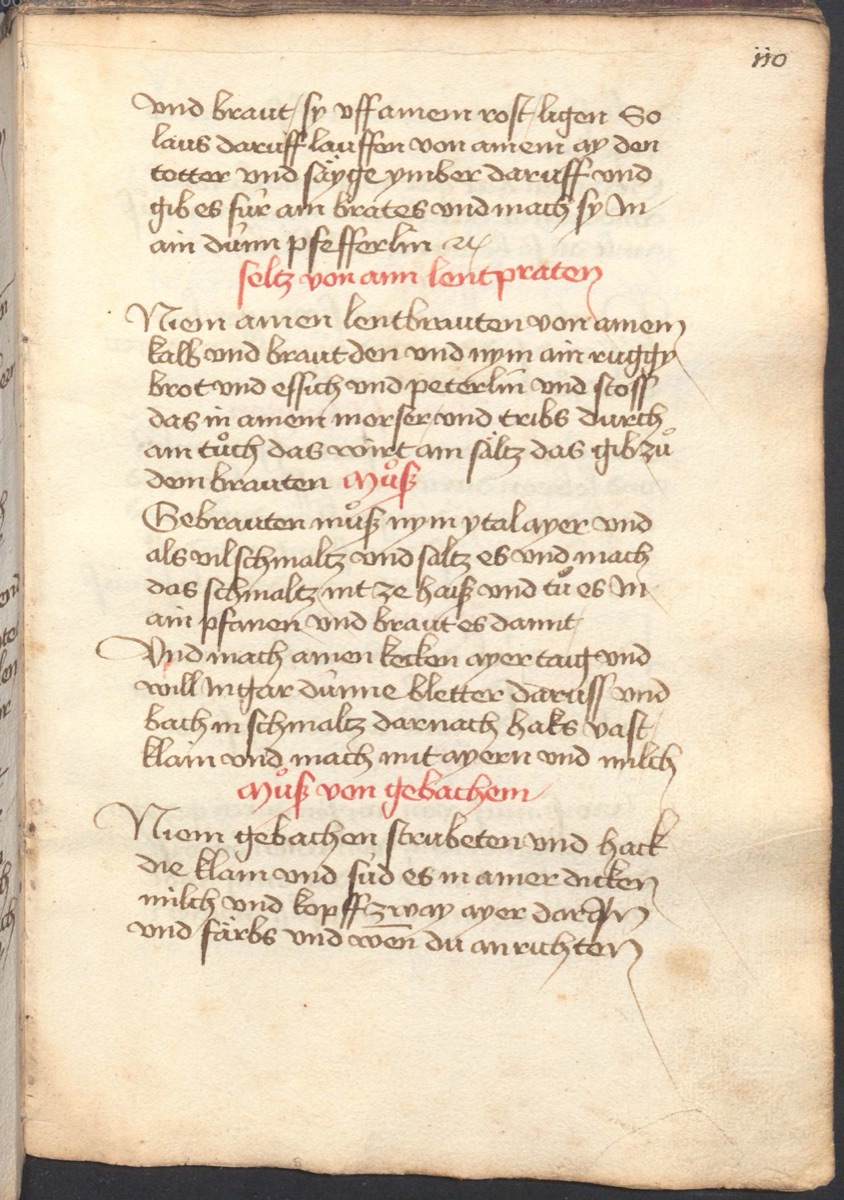 110
vnd braut sy vff ainem rost ligen So
laus daruff lauffen von ainem ay den
totter vnd säyge ymber daruff vnd
gib es für ain brates vnd mach sy In
ain dünn pfefferlin
seltz von ainn lentpraten
Niem ainen lentbrauten von ainem
kalb vnd braut den vnd nym ain ruggy
brot vnd essich vnd peterlin vnd stoss
das in ainem morser vnd tribs durch
ain tůch das wirt ain sältz das gib zů
dem brauten Můß
Gebrauten můß nym ytal ayer vnd
als vil schmaltz vnd saltz es vnd mach
das schmaltz nit ze haiß vnd tů es In
ain pfanen vnd braut es damit
Vnd mach ainen kecken ayer taig vnd
will In gar dünne bletter daruss vnd
bach in schmaltz darnach haks vast
klain vnd mach mit ayern vnd milch
Můß von gebachem
Niem gebachen strubeten vnd hack
die klain vnd süd es in ainer dicken
milch vnd kopff zway ayer daran
vnd färbs vnd wen̄ du anrichten